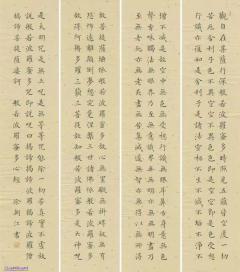 觀自在菩薩行深般若波羅蜜多時照見五蘊皆空度一切
苦厄舍利子色不異空空不異色色即是空空即是色受想
行識亦復如是舍利子是諸法空相不生不滅不垢不淨不
增不減是故空中無色無受想行識無眼耳鼻舌身意無色
聲香味觸法無眼界乃至無意識界無無明亦無無明盡乃
至無老死亦無老死盡無苦集滅道無智亦無得以無所得
故菩提薩埵依般若波羅蜜多故心無罣礙無罣礙故無有
恐怖遠離顛倒夢想究竟涅槃三世諸佛依般若波羅蜜多
故得阿耨多羅三藐三菩提故知般若波羅蜜多是大神咒
是大明咒是無上咒是無等等咒能除一切苦真實不虛故
說般若波羅蜜多咒即說咒曰揭諦揭諦波羅揭諦波羅僧
揭諦菩提薩婆訶 般若波羅蜜多心經 徐 書